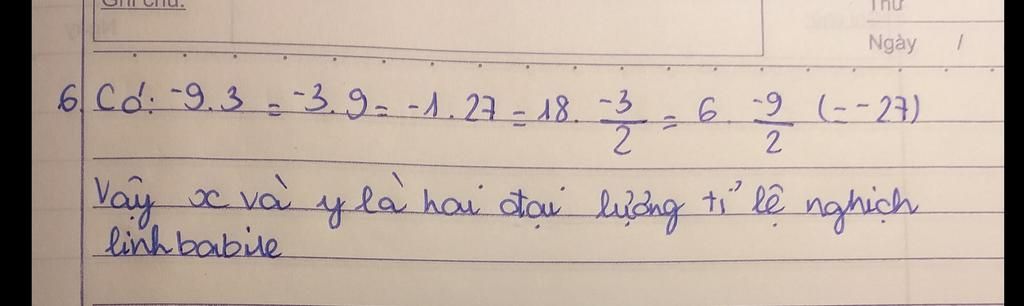 Ghi chú:
Thứ
Ngày /
6. Có: -9.3 = -3.9 = -1.27 = 18. -3/2 = 6. -9/2 (= -27)
Vậy x và y là hai đại lượng tỉ lệ nghịch
linhbabie